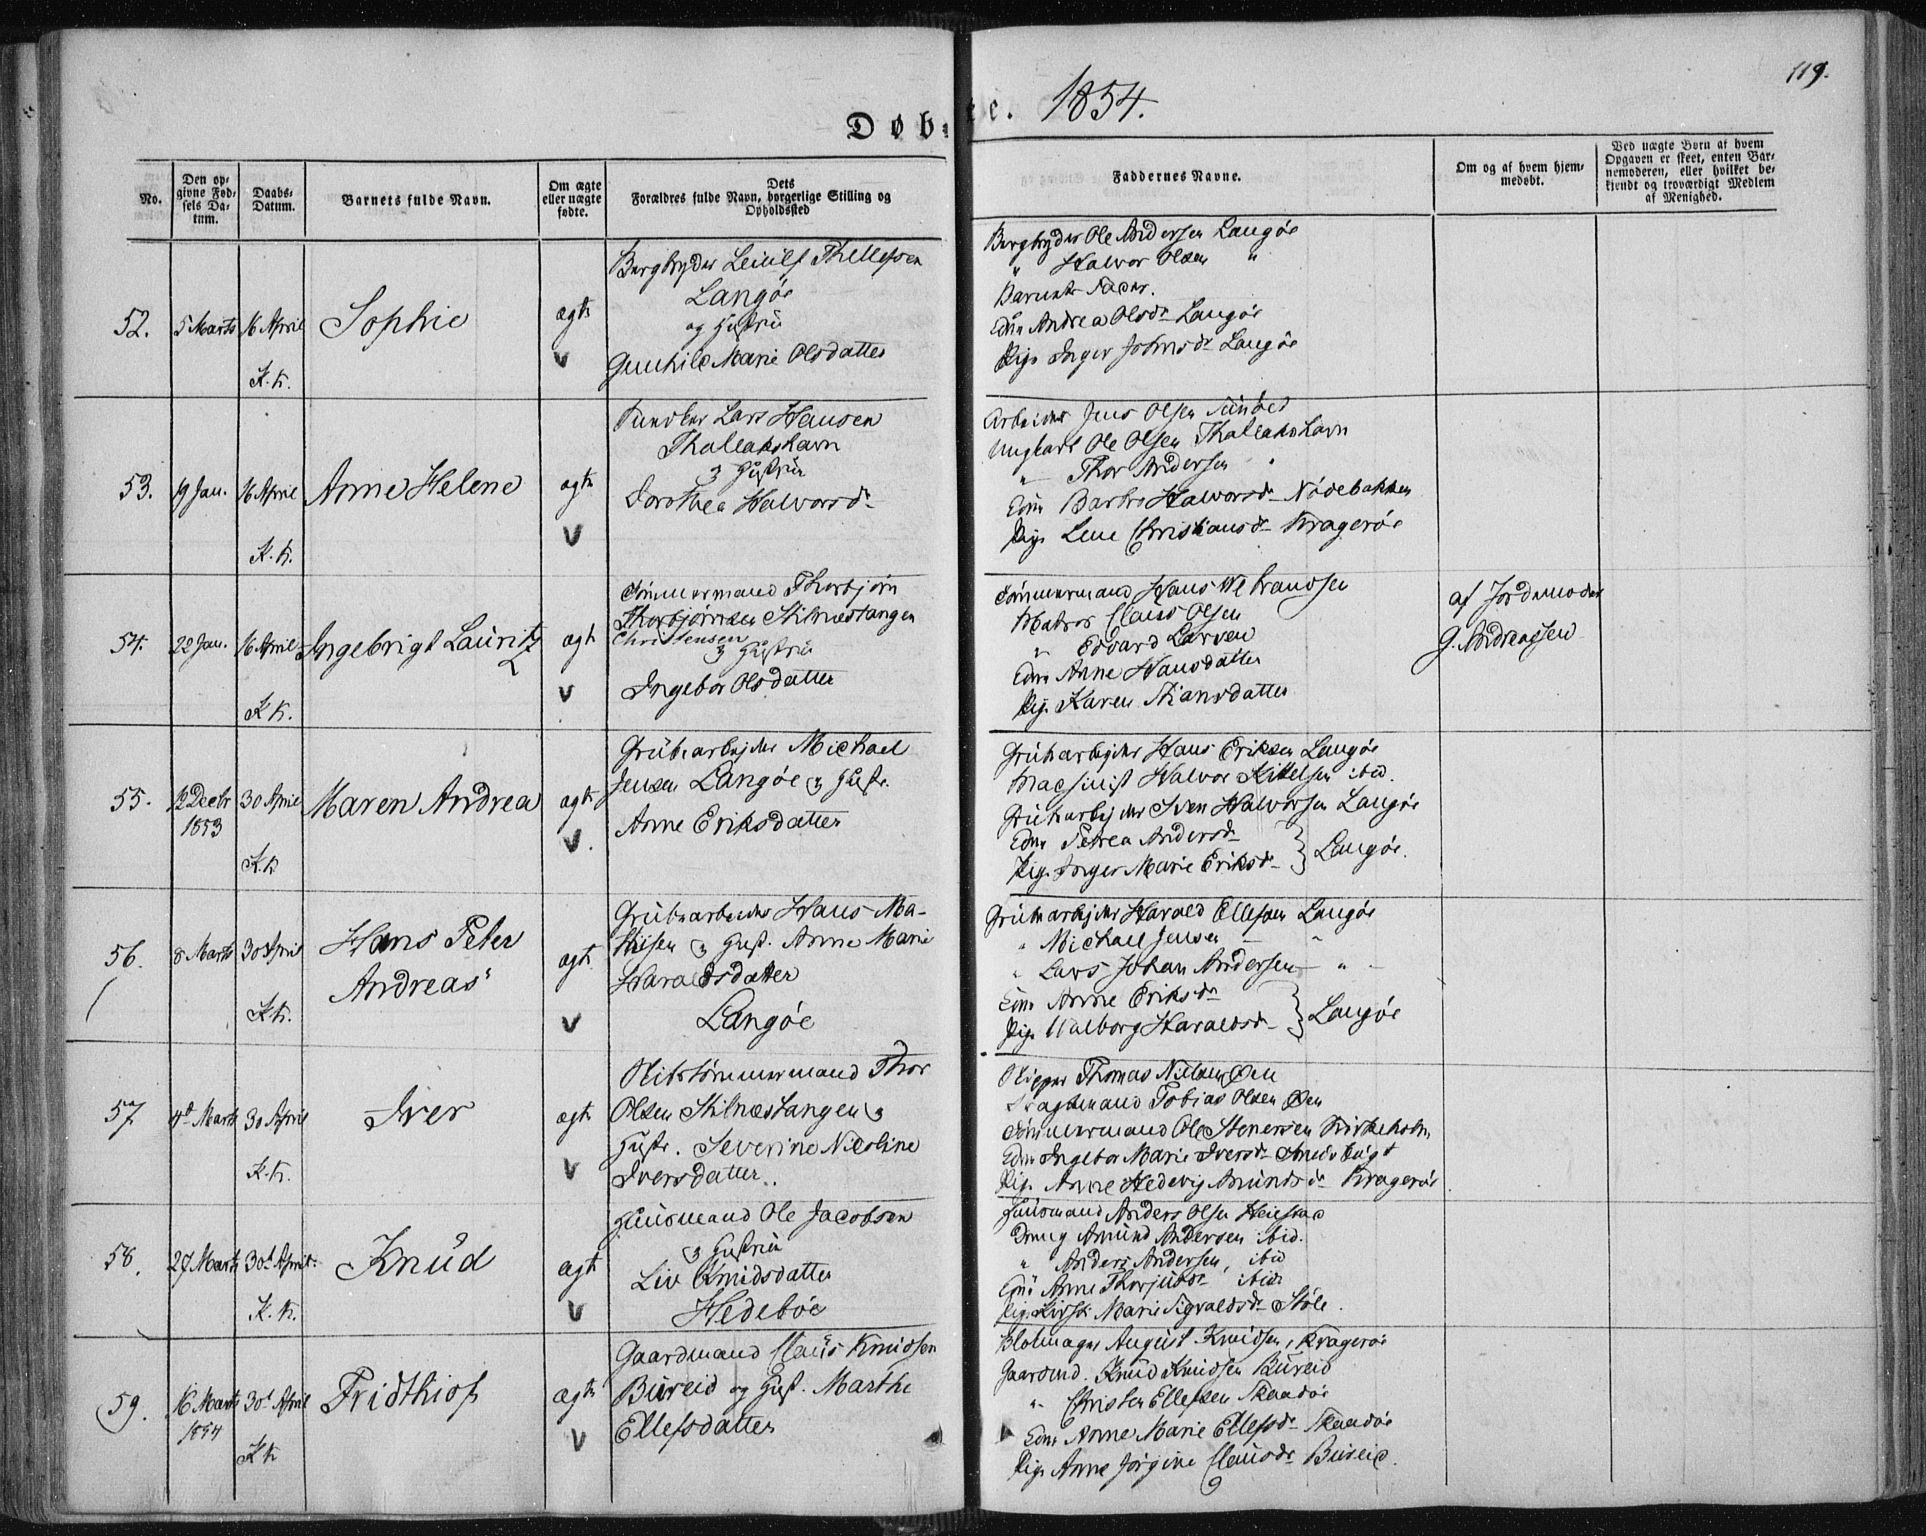 119.
Døbte. 1854.
No.
Den opgivne Fødsels Datum.
Daabs-Datum.
Barnets fulde Navn.
Om ægte eller uægte fødte.
Dets Forældres fulde Navn, borgerlige Stilling og Opholdssted
Faddernes Navne.
Om og af hvem hjemmedøbt.
Ved uægte Børn af hvem Opgaven er skeet, enten Barnemoderen, eller hvilket bekjendt og troværdigt Medlem af Menighed.
52.
5 Marts
16 April
K. k.
Sophie
ægte
V
Bergbryder Leiulf Thellefsen
Langøe
og Hustrue
Gunhild Marie Olsdatter
Bergbryder Ole Andersen Langøe
" Halvor Olsen "
Barnets Fader.
Edm Andrea Olsdr Langøe
Pige Inger Johnsdr Langøe
53.
19 Jan.
16 April
K. k.
Anne Helene
ægte
V
Lars Hansen
Thallakshavn
og Hustrue
Dorothea Halvorsdr
Arbeider Jens Olsen
Ungkarl Ole Olsen Thallakshavn
" Thor Andersen "
Edm Barbro Halvorsdr Nødebakken
Pige Lene Christiansdr Kragerøe
54.
22 Jan.
16 April
K. k.
Ingebrigt Lauritz
ægte
V
Tømmermand Thorbjørn
Thorbjørnsen Stilnæstangen
Christensen
og Hustrue
Ingebor Olsdatter
Tømmermand Hans Wetrandsen
Matros Claus Olsen
" Edvard Larsen
Edm Anne Hansdatter
Pige Karen Stiansdatter
af Jordemoder
G. Andreassen
55.
12 Decbr
1853
30 April
K. k.
Maren Andrea
ægte
V.
Grubearbejder Michael
Jensen Langøe og Hustr.
Anne Eriksdatter
Grubearbejder Hans Eriksen Langøe
Maschinist Halvor Kittelsen ibid.
Grubearbejder Sven Halvorsen Langøe
Edm Petrea Andersdr
Pige Inger Marie Eriksdr } Langøe.
56.
8 Marts
30 April
K. k.
Hans Peter
Andreas
ægte
V
Grubearbeider Hans Ma-
thisen og Hust. Anne Marie
Haraldsdatter
Langøe
Grubearbejder Harald Ellefsen Langøe
" Michael Jensen — "
" Lars Johan Andersen — " —
Edm Anne Eriksdr
Pige Walborg Haraldsdr } Langøe
57
4d Marts
30 April
K. k.
Iver
ægte
V
Skibstømmermand Thor
Olsen Stilnæstangen og
Hustr. Severine Nicoline
Iversdatter.
Skipper Thomas Nielsen Øen
Fragtmand Tobias Olsen Øen
Tømmermand Ole Stenersen Kirkeholm
Edm Ingebor Marie Iversdr Smedsbugt
Pige Anne Hedevig Amundsdr Kragerøe
58.
27 Marts
30d April
K. k.
Knud
ægte
V
Huusmand Ole Jacobsen
og Hustrue
Liv Knudsdatter
Hedebøe
Huusmand Anders Olsen Heiestad
Dreng Amund Andersen ibid.
" Anders Andersen, ibid
Edm Anne Thorjusdr ibid
Pige Kirst. Marie Sigvaldsdr Støle.
59.
16 Marts
1854
30d April
K k
Fridthiof
ægte
V
Gaardmand Claus Knudsen
Bureid og Hust. Marthe
Ellefsdatter
Blokmager August Knudsen, Kragerøe
Gaardmd. Knud Knudsen Bureid
" Christen Ellefsen Skaadøe
Edm Anne Marie Ellefsdr Skaadøe
Pige Anne Jørgine Clausdr Bureid.